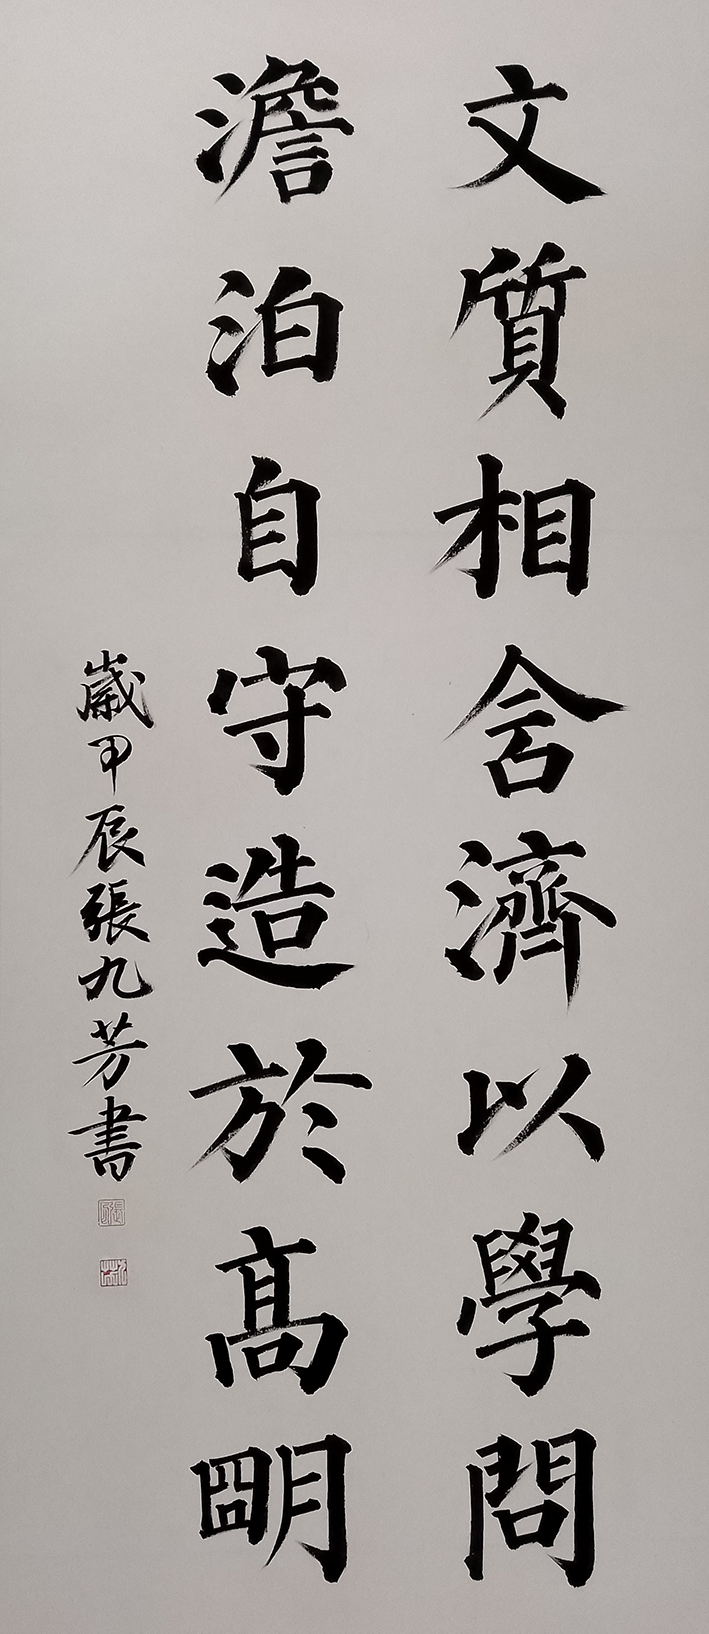 文質相含濟以學問
澹泊自守造於髙朙
歲甲辰張九芳書